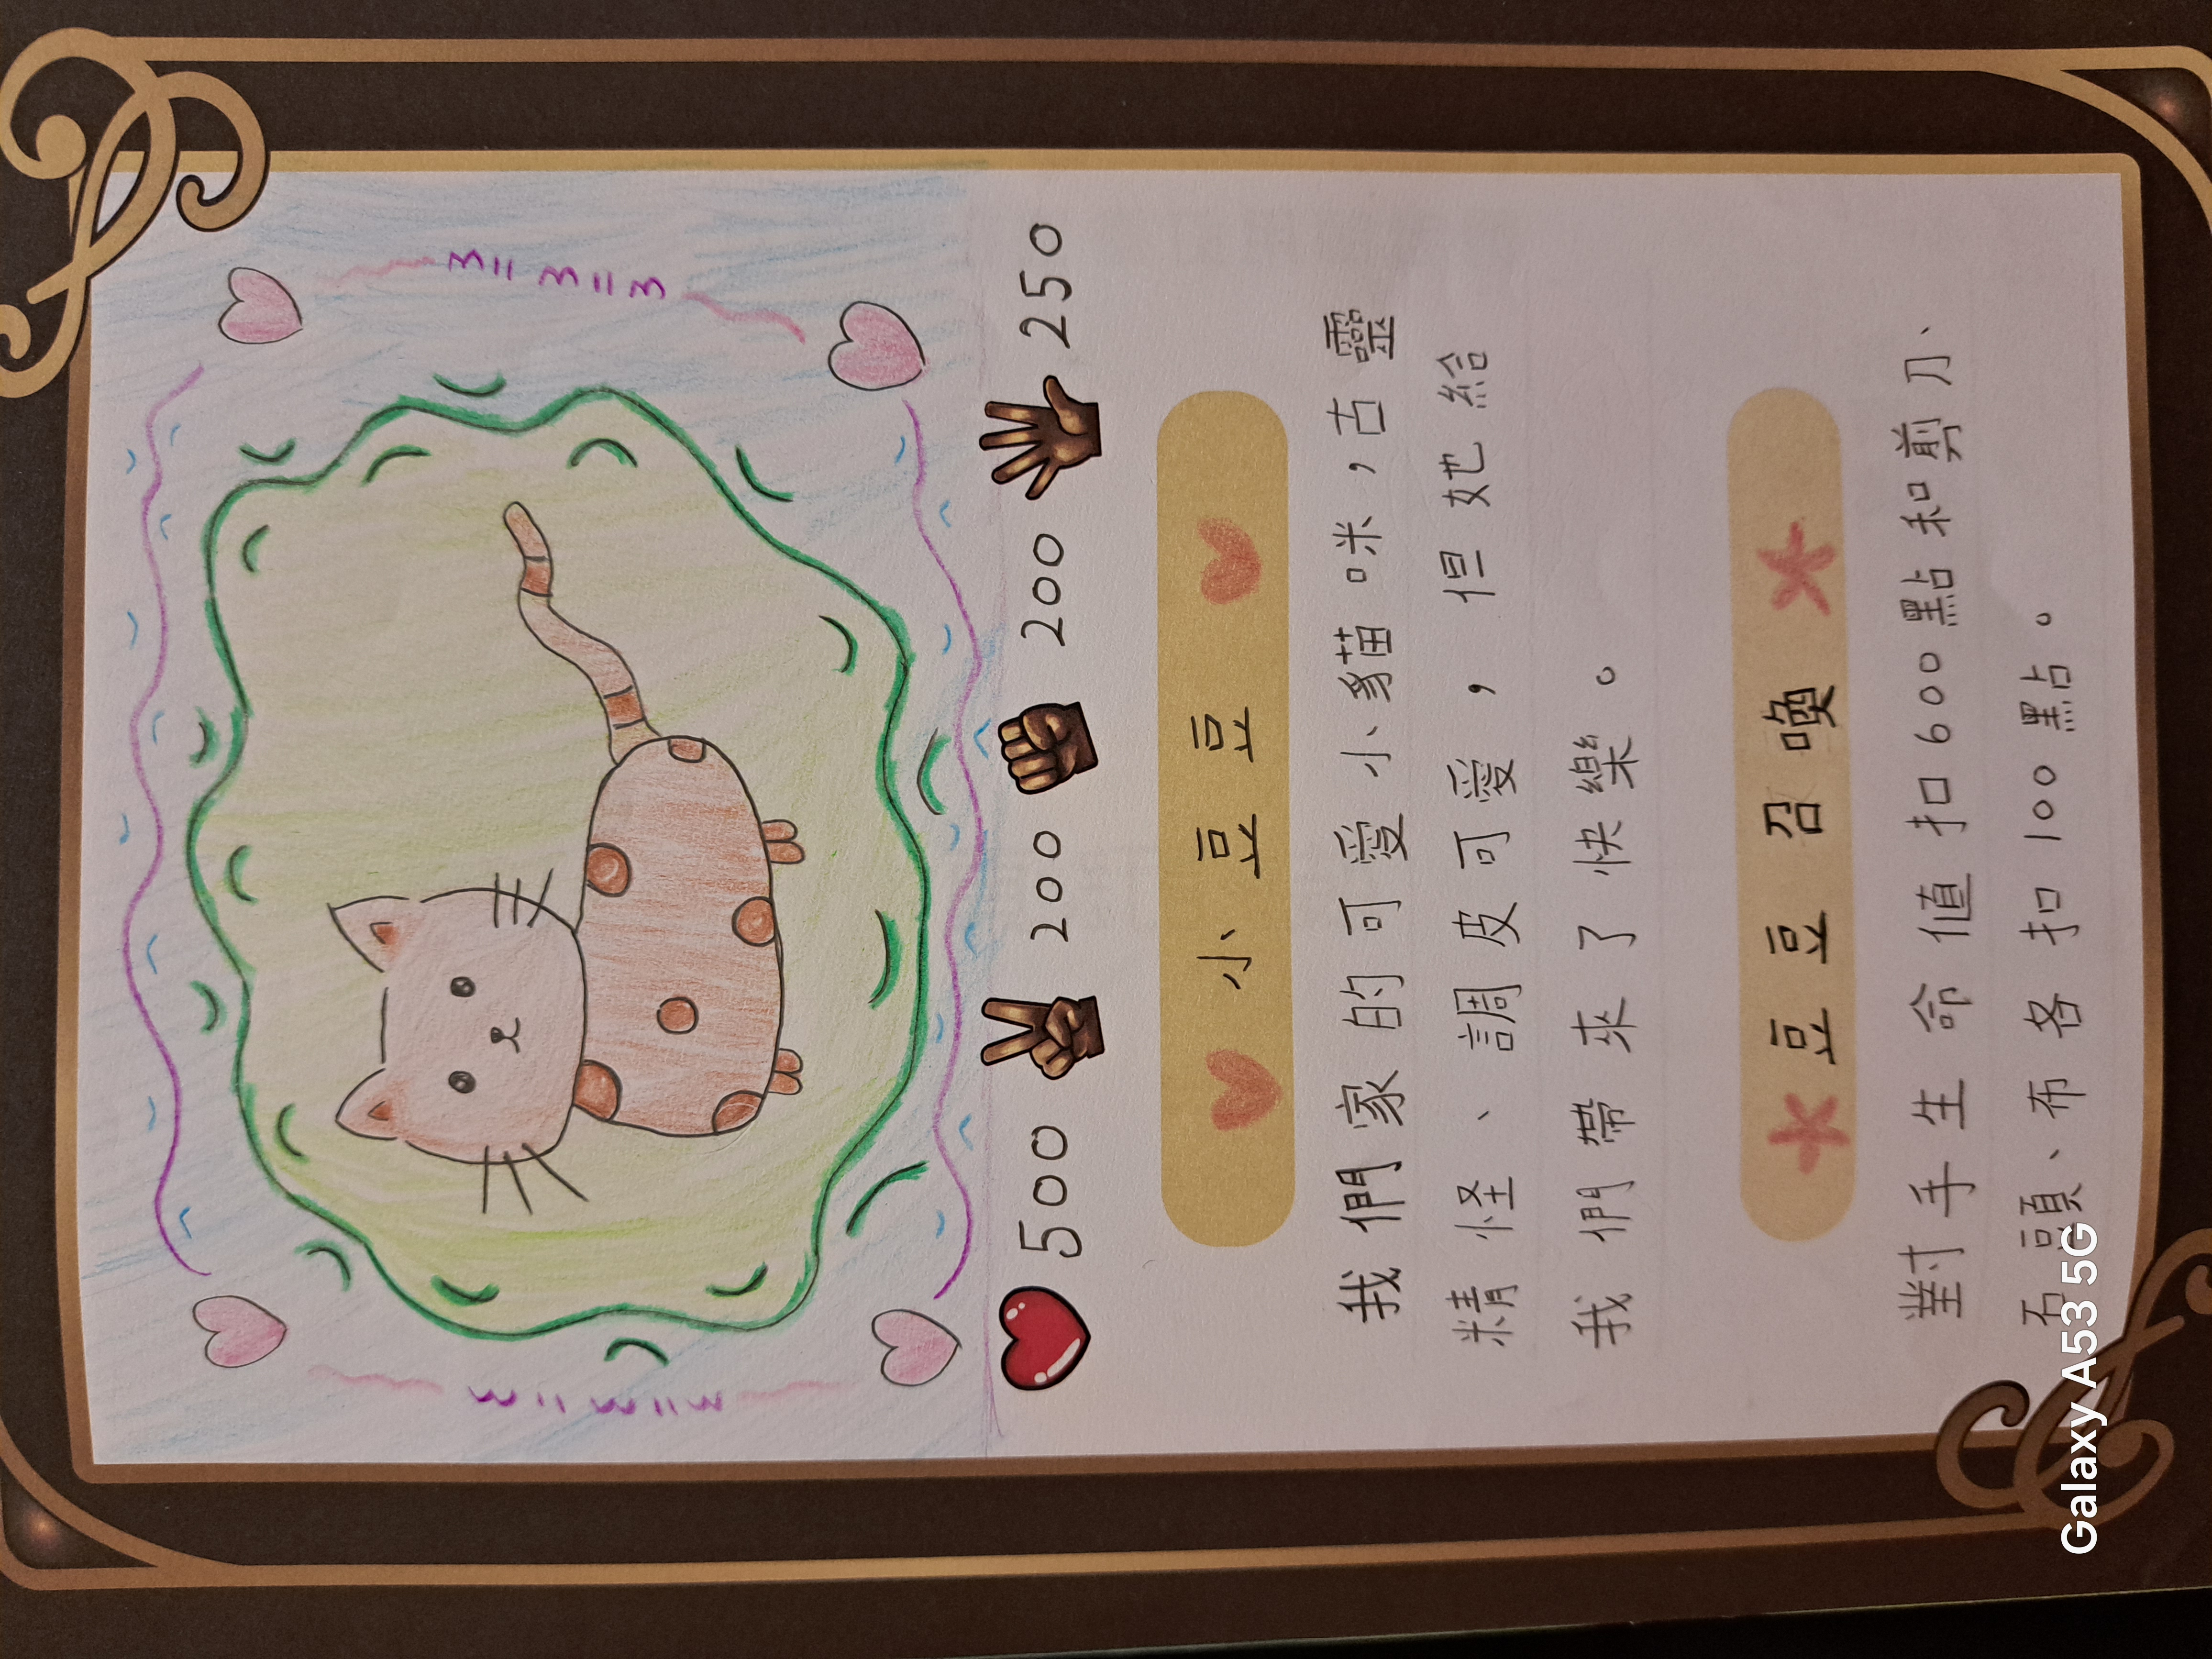 500 200 200 250
小豆豆
我們家的可愛小貓咪，古靈
精怪、調皮可愛，但她給
我們帶來了快樂。
豆豆召喚
對手生命值扣600點和剪刀、
石頭、布各扣100點。
Galaxy A53 5G